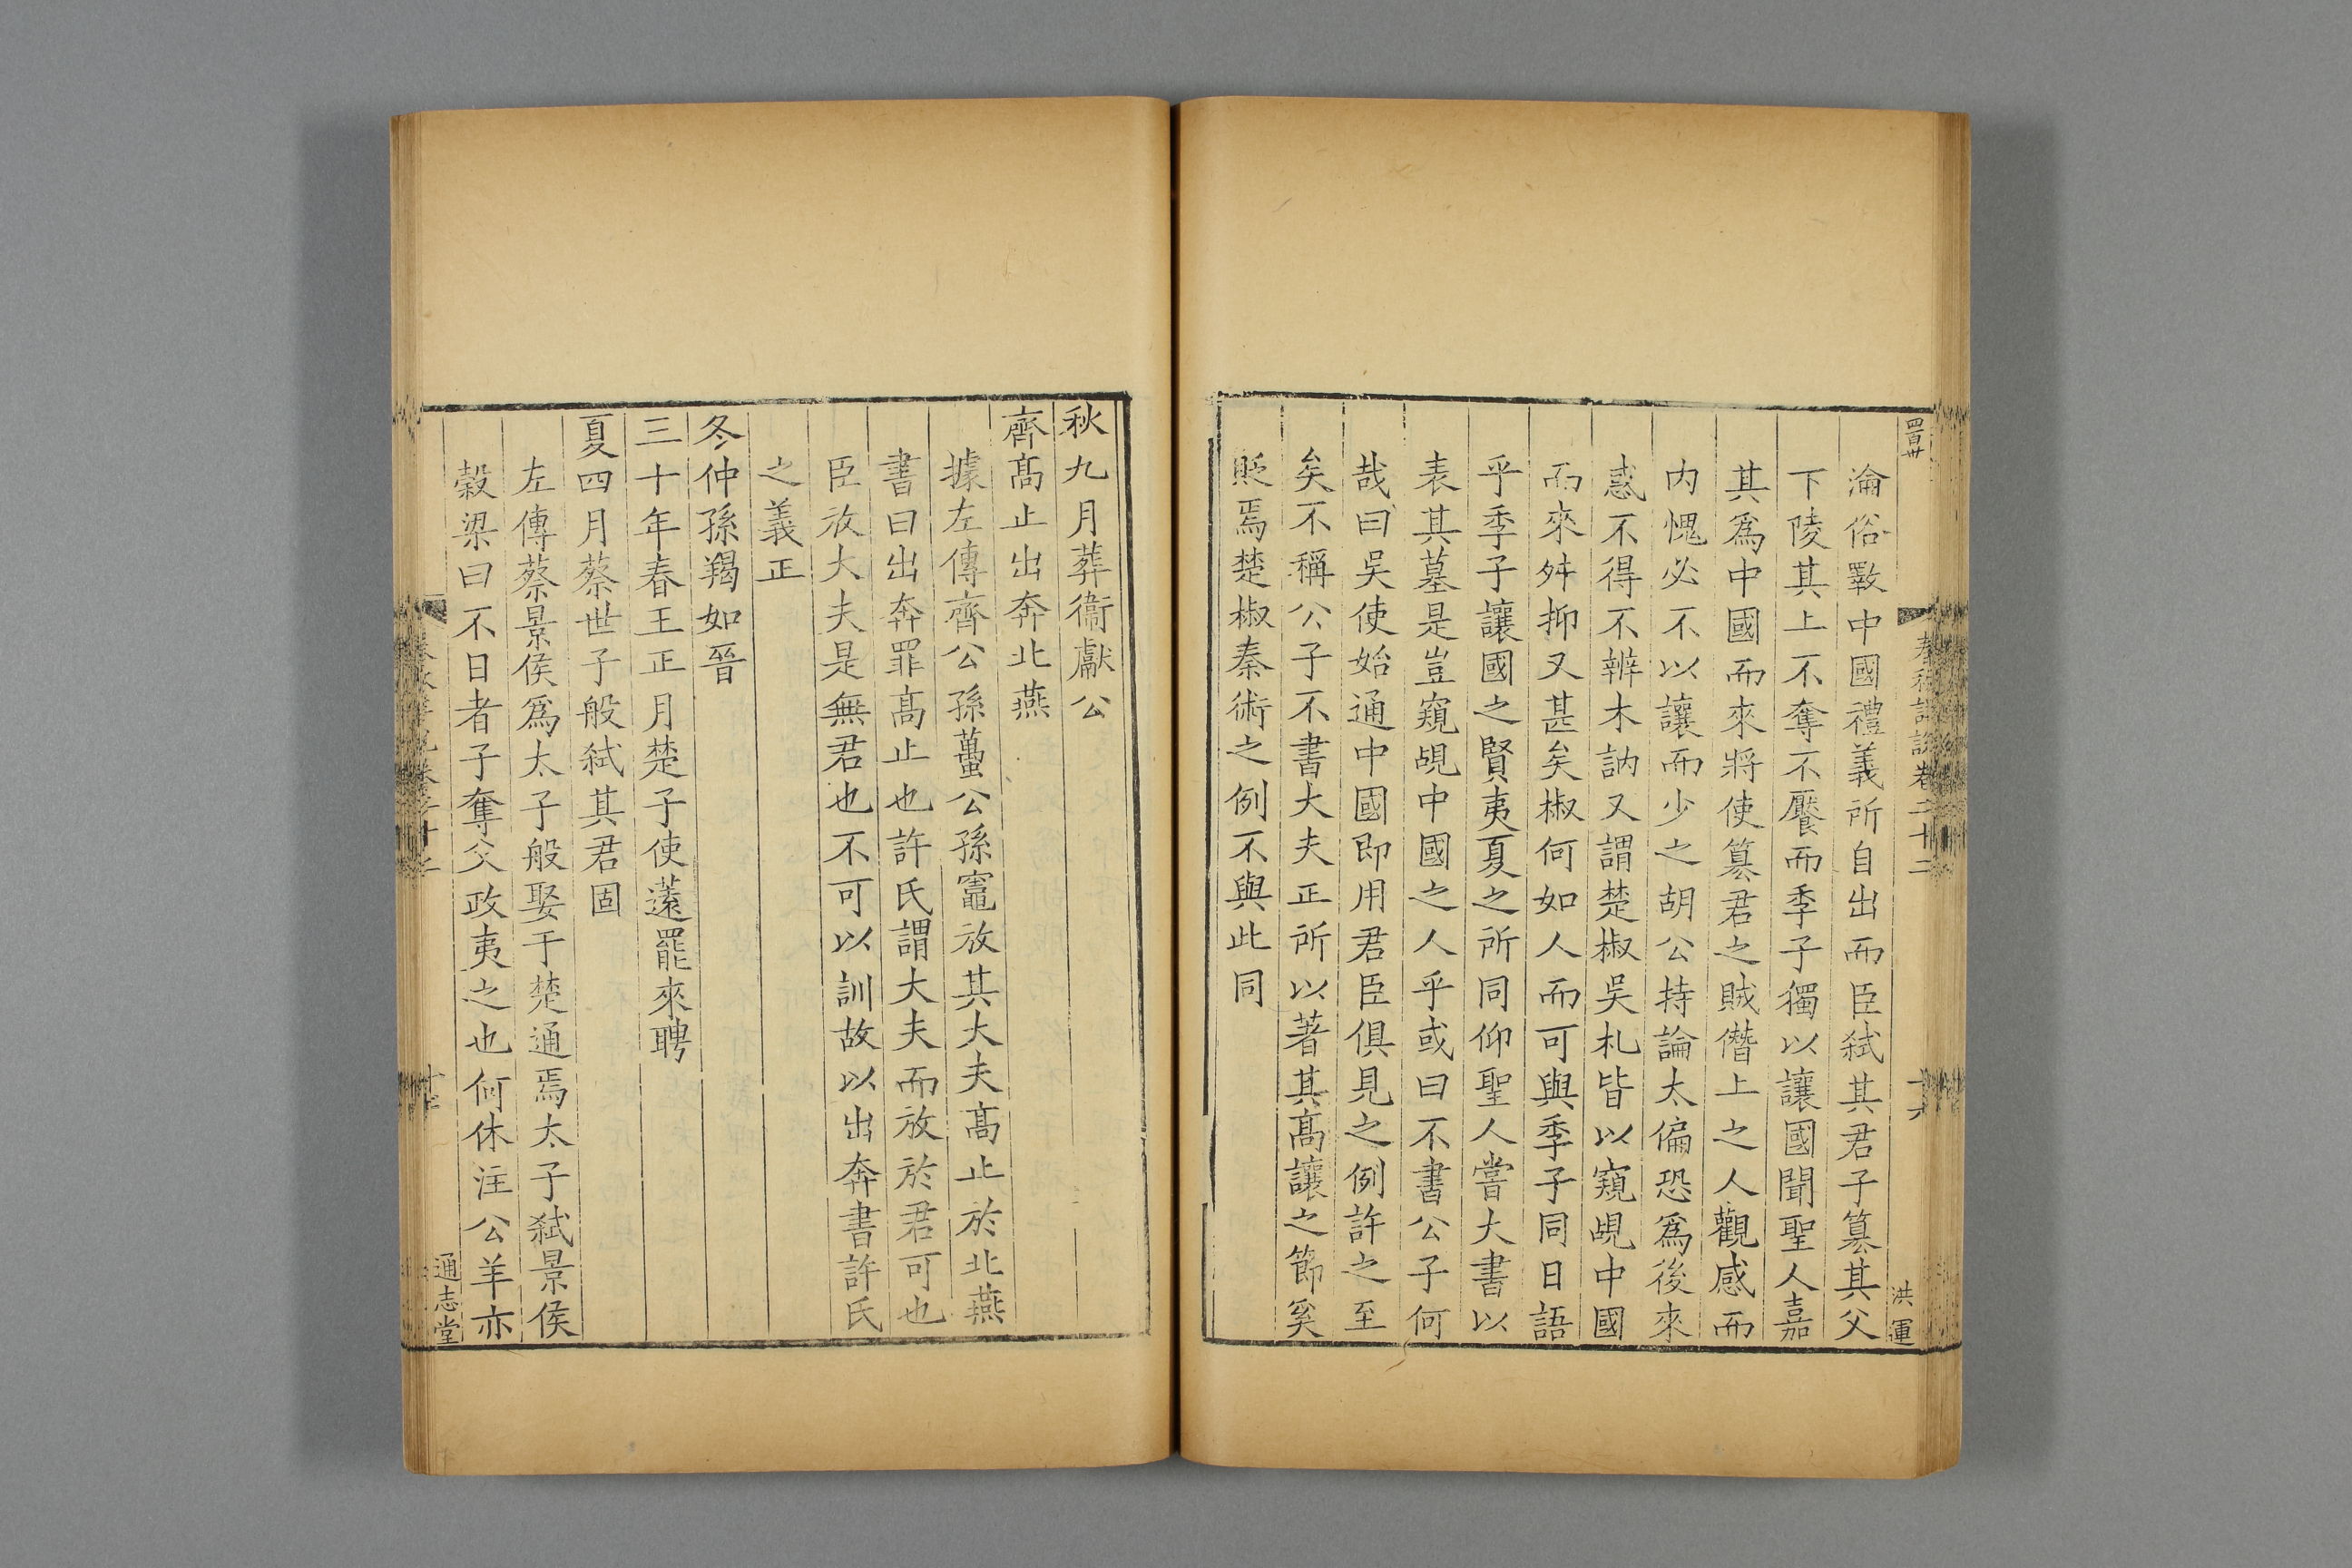 四百卅
春秋詳說卷二十二
十六
洪運
淪俗斁中國禮義所自出而臣弒其君子簒其父
下陵其上不奪不饜而季子獨以讓國聞聖人嘉
其爲中國而來將使簒君之賊僭上之人觀感而
内愧必不以讓而少之胡公持論太偏恐爲後來
惑不得不辨木訥又謂楚椒吳札皆以窺覘中國
而來舛抑又甚矣椒何如人而可與季子同日語
乎季子讓國之賢夷夏之所同仰聖人嘗大書以
表其墓是豈窺覘中國之人乎或曰不書公子何
哉曰吳使始通中國即用君臣俱見之例許之至
矣不稱公子不書大夫正所以著其髙讓之節奚
貶焉楚椒秦術之例不與此同
秋九月葬衞獻公
齊髙止出奔北燕
據左傳齊公孫蠆公孫竈放其大夫髙止於北燕
書曰出奔罪髙止也許氏謂大夫而放於君可也
臣放大夫是無君也不可以訓故以出奔書許氏
之義正
冬仲孫羯如晉
三十年春王正月楚子使薳罷來聘
夏四月蔡世子般弒其君固
左傳蔡景侯爲太子般娶于楚通焉太子弒景侯
穀梁曰不日者子奪父政夷之也何休注公羊亦
通志堂